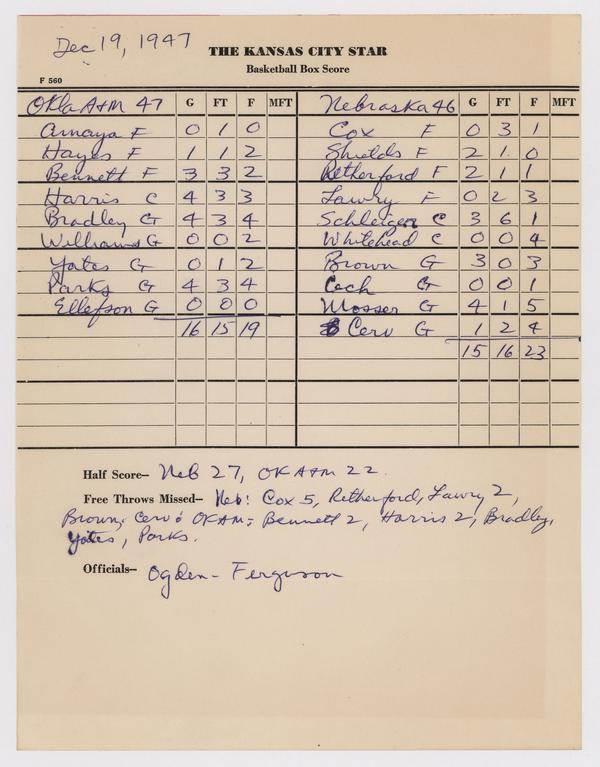 Dec 19, 1947
THE KANSAS CITY STAR
Basketball Box Score
F 560
Okla A+M 47 G FT F MFT Nebraska 46 G FT F MFT
Amaya F 0 1 0 Cox F 0 3 1
Hayes F 1 1 2 Shields F 2 1 0
Bennett F 3 3 2 Retherford F 2 1 1
Harris C 4 3 3 Lawry F 0 2 3
Bradley G 4 3 4 Schleiger C 3 6 1
Williams G 0 0 2 Whitehead C 0 0 4
Yates G 0 1 2 Brown G 3 0 3
Parks G 4 3 4 Cech G 0 0 1
Ellefson G 0 0 0 Mosser G 4 1 5
16 15 19 Cerv G 1 2 4
15 16 23
Half Score– Neb 27, OK A+M 22
Free Throws Missed– Neb: Cox 5, Retherford, Lawry 2,
Brown, Cerv; OKAM: Bennett 2, Harris 2, Bradley,
Yates, Parks.
Officials– Ogden – Ferguson